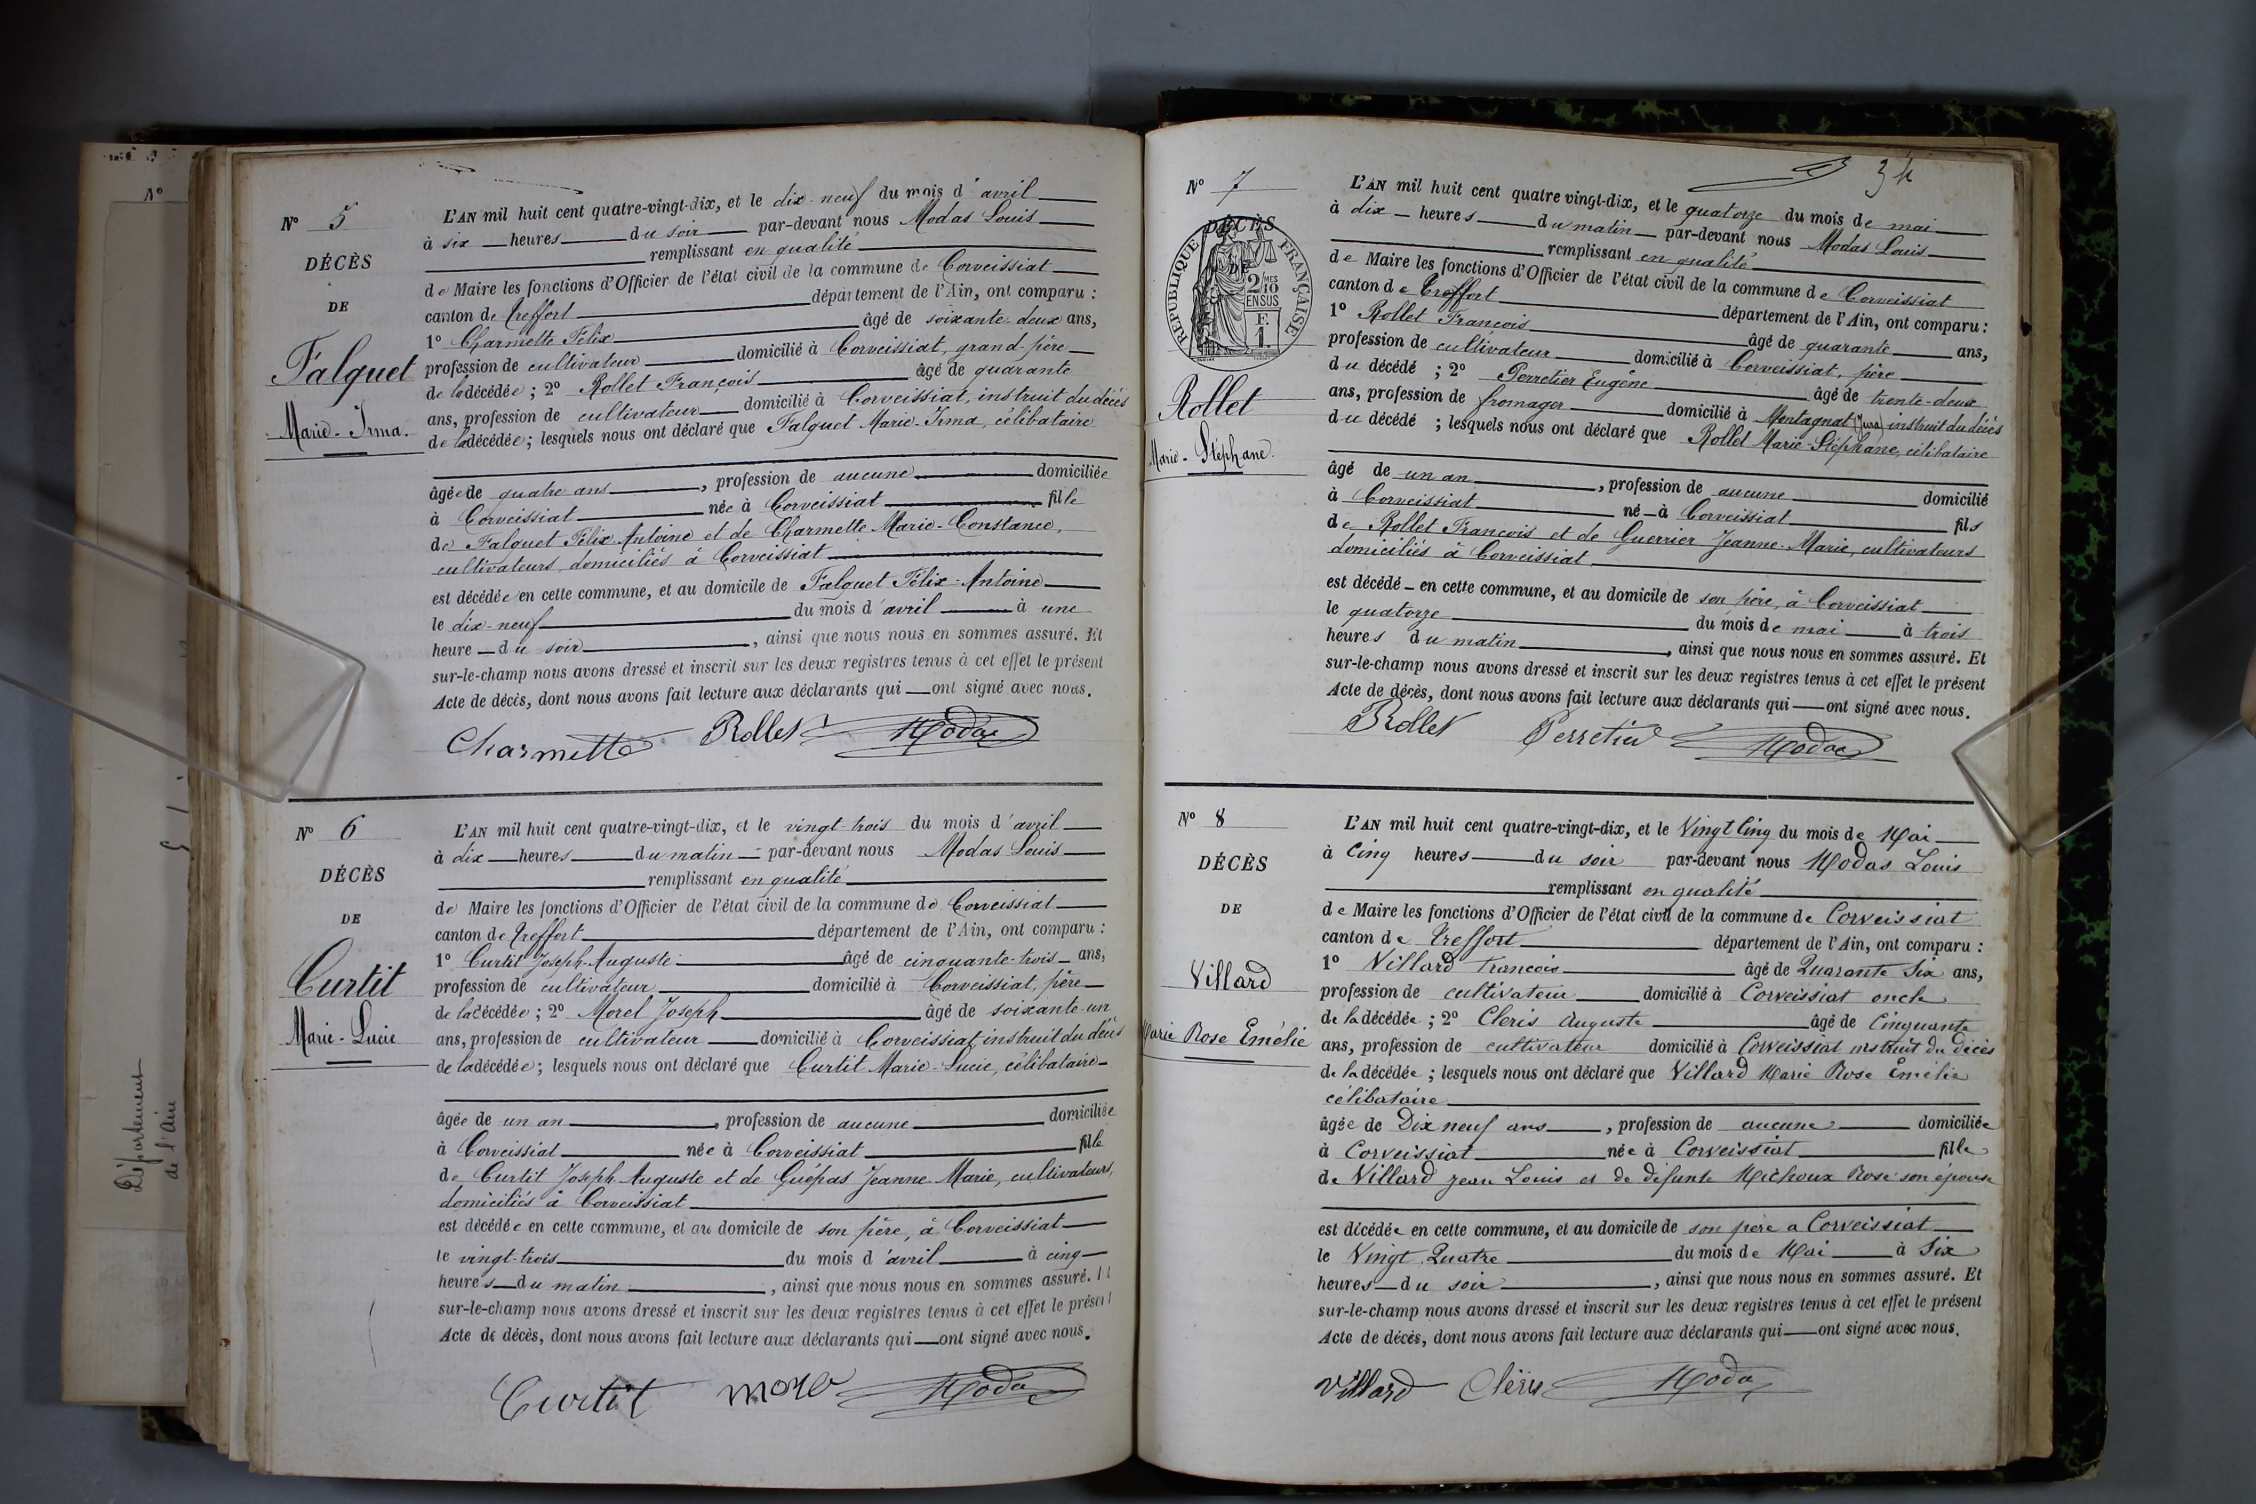 N° 5
DÉCÈS
DE
Falquet
Marie-Irma.
L'AN mil huit cent quatre-vingt-dix, et le dix-neuf du mois d'avril
à six heures du soir par-devant nous Modas Louis
remplissant en qualité
de Maire les fonctions d'Officier de l'état civil de la commune de Corveissiat
canton de Treffort département de l'Ain, ont comparu :
1° Charmette Félix âgé de soixante-deux ans,
profession de cultivateur domicilié à Corveissiat, grand-père
de la décédée ; 2° Rollet François âgé de quarante
ans, profession de cultivateur domicilié à Corveissiat, instruit du décès
de la décédée ; lesquels nous ont déclaré que Falquet Marie-Irma, célibataire
âgée de quatre ans, profession de aucune domiciliée
à Corveissiat née à Corveissiat fille
de Falquet Félix Antoine et de Charmette Marie-Constance,
cultivateurs domiciliés à Corveissiat
est décédée en cette commune, et au domicile de Falquet Félix-Antoine
le dix-neuf du mois d'avril à une
heure du soir, ainsi que nous nous en sommes assuré. Et
sur-le-champ nous avons dressé et inscrit sur les deux registres tenus à cet effet le présent
Acte de décès, dont nous avons fait lecture aux déclarants qui ont signé avec nous.
Charmette Rollet Modas
N° 6
DÉCÈS
DE
Curtit
Marie-Lucie
L'AN mil huit cent quatre-vingt-dix, et le vingt-trois du mois d'avril
à dix heures du matin par-devant nous Modas Louis
remplissant en qualité
de Maire les fonctions d'Officier de l'état civil de la commune de Corveissiat
canton de Treffort département de l'Ain, ont comparu :
1° Curtit Joseph-Auguste âgé de cinquante-trois ans,
profession de cultivateur domicilié à Corveissiat, père
de la décédée ; 2° Morel Joseph âgé de soixante-un
ans, profession de cultivateur domicilié à Corveissiat instruit du décès
de la décédée ; lesquels nous ont déclaré que Curtit Marie-Lucie, célibataire
âgée de un an, profession de aucune domiciliée
à Corveissiat née à Corveissiat fille
de Curtit Joseph-Auguste et de Guépas Jeanne-Marie, cultivateurs,
domiciliés à Corveissiat
est décédée en cette commune, et au domicile de son père, à Corveissiat
le vingt-trois du mois d'avril à cinq
heures du matin, ainsi que nous nous en sommes assuré. Et
sur-le-champ nous avons dressé et inscrit sur les deux registres tenus à cet effet le présent
Acte de décès, dont nous avons fait lecture aux déclarants qui ont signé avec nous.
Curtit Morel Modas
Département
de l'Ain
N°
34
N° 7
DÉCÈS
DE
RÉPUBLIQUE FRANÇAISE
2/10 MES
EN SUS
F.
1
Rollet
Marie-Stéphane.
L'AN mil huit cent quatre vingt-dix, et le quatorze du mois de mai
à dix heures du matin par-devant nous Modas Louis
remplissant en qualité
de Maire les fonctions d'Officier de l'état civil de la commune de Corveissiat
canton de Treffort département de l'Ain, ont comparu :
1° Rollet François âgé de quarante ans,
profession de cultivateur domicilié à Corveissiat, père
du décédé ; 2° Perretier Eugène âgé de trente-deux
ans, profession de fromager domicilié à Montagnat (Jura) instruit du décès
du décédé ; lesquels nous ont déclaré que Rollet Marie-Stéphane, célibataire
âgé de un an, profession de aucune domicilié
à Corveissiat né à Corveissiat fils
de Rollet François et de Guerrier Jeanne-Marie, cultivateurs
domiciliés à Corveissiat
est décédé en cette commune, et au domicile de son père, à Corveissiat
le quatorze du mois de mai à trois
heures du matin, ainsi que nous nous en sommes assuré. Et
sur-le-champ nous avons dressé et inscrit sur les deux registres tenus à cet effet le présent
Acte de décès, dont nous avons fait lecture aux déclarants qui ont signé avec nous.
Rollet Perretier Modas
N° 8
DÉCÈS
DE
Villard
Marie Rose Emélie
L'AN mil huit cent quatre-vingt-dix, et le Vingt Cinq du mois de Mai
à Cinq heures du soir par-devant nous Modas Louis
remplissant en qualité
de Maire les fonctions d'Officier de l'état civil de la commune de Corveissiat
canton de Treffort département de l'Ain, ont comparu :
1° Villard François âgé de Quarante Six ans,
profession de cultivateur domicilié à Corveissiat oncle
de la décédée ; 2° Cleris Auguste âgé de Cinquante
ans, profession de cultivateur domicilié à Corveissiat instruit du décès
de la décédée ; lesquels nous ont déclaré que Villard Marie Rose Emélie
célibataire
âgée de Dix neuf ans, profession de aucune domiciliée
à Corveissiat née à Corveissiat fille
de Villard Jean Louis et de défunte Michoux Rose son épouse
est décédée en cette commune, et au domicile de son père a Corveissiat
le Vingt Quatre du mois de Mai à Six
heures du soir, ainsi que nous nous en sommes assuré. Et
sur-le-champ nous avons dressé et inscrit sur les deux registres tenus à cet effet le présent
Acte de décès, dont nous avons fait lecture aux déclarants qui ont signé avec nous.
Villard Cléris Modas